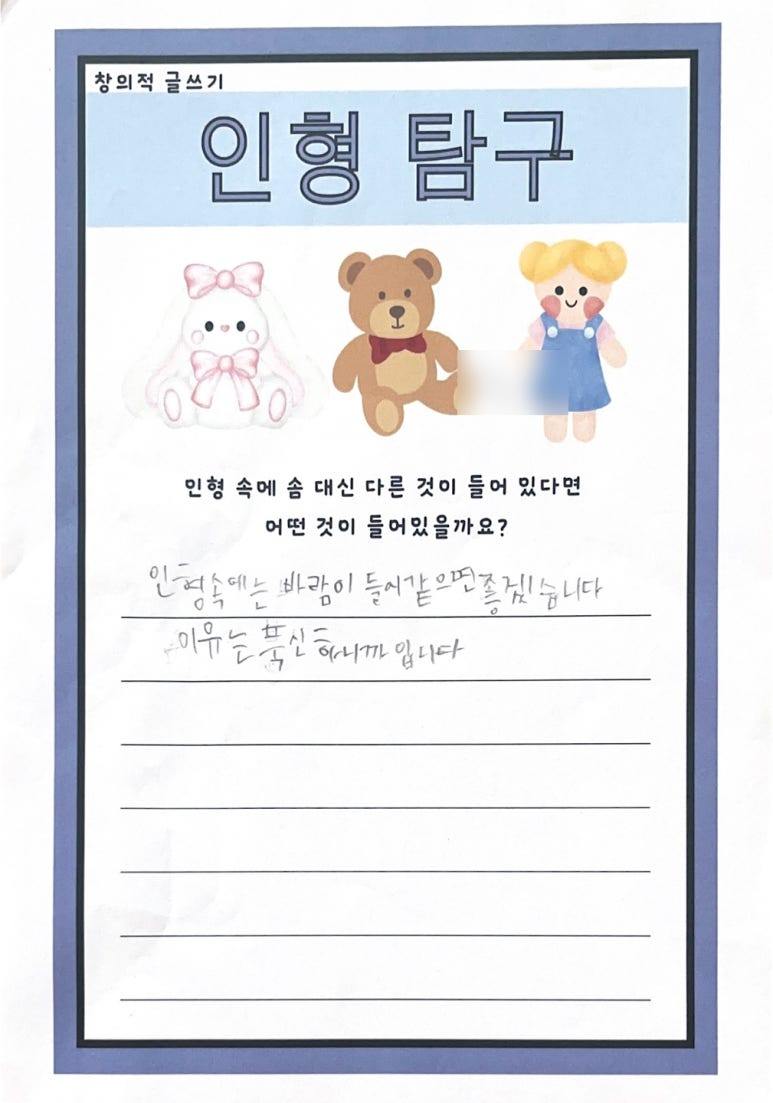 창의적 글쓰기
인형 탐구
인형 속에 솜 대신 다른 것이 들어 있다면
어떤 것이 들어있을까요?
인형속에는 바람이 들어같으면 좋겠습니다
이유는 푹신하니까 입니다